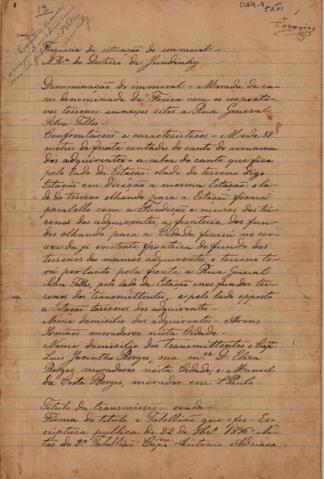 Freguesia da situação do immovel—
N. Sra. do Desterro de Jundiahy
Denominação do immovel— Morada de ca-
sas denominada da Foeira com os respecti-
vos terrenos annexos sitos a Rua General
Silva Telles—
Confrontações e caracteristicos— Mede 58
metros de frente contados do canto do armazem
dos adquirentes— a saber do canto que fica
pelo lado da Estação; o lado do terreno digo
Estação em direção a mesma Estação; o la-
do do terreno olhando para a Estação ficará
parallelo com a Fundição e muros dos ter-
renos dos adquirentes, a fronteira dos fun-
dos olhando para a Cidade ficará no cor-
rer da já existente fronteira do fundo dos
terrenos dos mesmos adquirentes, o terreno te-
rá portanto pela frente a Rua General
Silva Telles, pelo lado da Estação e nos fundos ter-
renos dos transmittentes, e pelo lado opposto
a Estação terrenos dos adquirentes—
Nome domicilio dos adquirentes— Arens
Irmãos moradores nesta Cidade—
Nome domicilio dos transmittentes o Capm
Luis Jacintho Borges, sua mer D. Elisa
Borges, moradores nesta Cidade e Manoel
da Costa Borges, morador em S. Paulo.
Titulo da transmissão— venda
Forma do titulo e Tabellião que o fes— Es-
criptura publica de 22 de de 1896— No-
tas do 2º Tabellião Capm Antonio Adriano